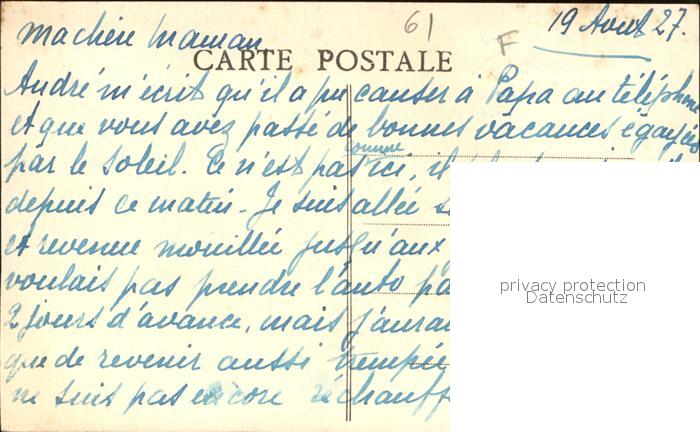 61
F
19 Aout 27.
Ma chère Maman
CARTE POSTALE
André m'écrit qu'il a pu causer à Papa au téléphone
et que vous avez passé de bonnes vacances égayées
par le soleil. Ce n'est pas comme ici, il
depuis ce matin - Je suis allée
et revenue mouillée jusqu'aux
voulait pas prendre l'auto
2 jours d'avance, mais j'aurai
que de revenir aussi trempée
ne suis pas encore réchauff
privacy protection
Datenschutz